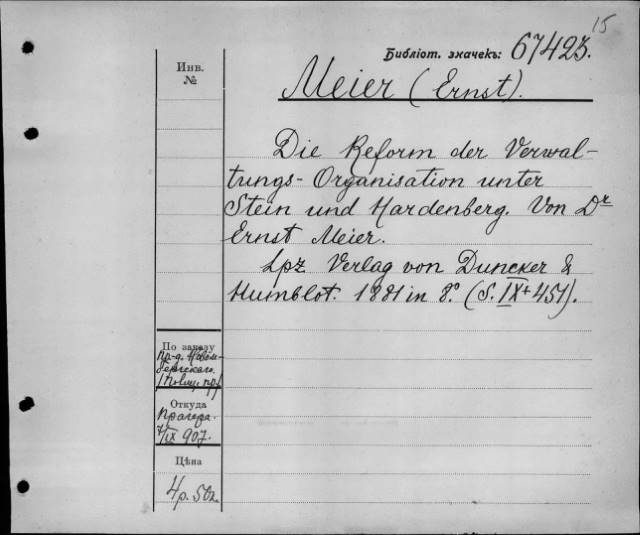 15
Библіот. значекъ: 67423.
Инв.
№
Meier (Ernst).
Die Reform der Verwal-
tungs-Organisation unter
Stein und Hardenberg. Von Dr
Ernst Meier.
Lpz Verlag von Duncker &
Humblot. 1881 in 8° (S. IX+451).
По заказу
пр-д.
Откуда
Прагера.
7/IX 907.
Цѣна
4 р. 50к.